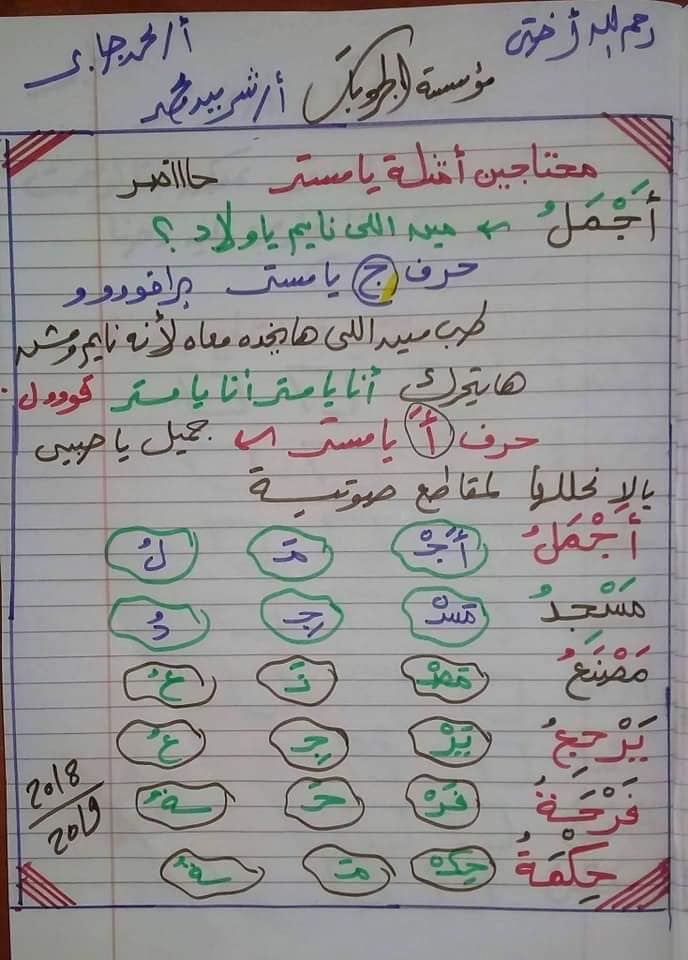 رحم الله أختي
أ/محمد جابر
مؤسسة
أ/شربيد محمد
محتاجين أمثلة يا مستر حاااضر
أَجْمَلُ ← مين اللي نايم ياولاد ؟
حرف ج يا مستر برافوووو
طب مين اللي هايخده معاه لأنه نايم ومش
هايتحرك أنا يا مستر أنا يا مستر قوووول .
حرف أَ يا مستر ← جميل يا حبيبي
يالا نحللها لمقاطع صوتية
أَجْمَلُ أَجْ مَ لُ
مَسْجِدُ مَسْ جِ دُ
مَصْنَعُ مَصْ نَ عُ
يَرْجِعُ يَرْ جِ عُ
فَرْحَةُ فَرْ حَ ـةُ
حِكْمَةُ حِكْ مَ ـةُ
2018/2019